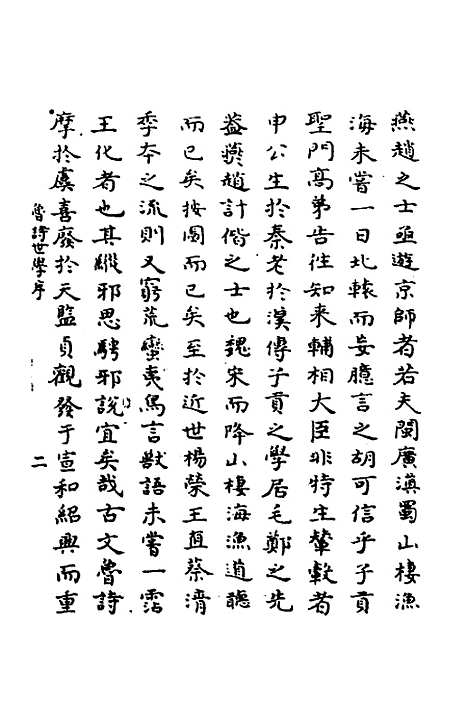 燕趙之士亟遊京師者若夫閩廣滇蜀山棲漁
海未嘗一日北轅而妄臆言之胡可信乎子貢
聖門高弟告往知来輔相大臣非特生輦轂者
申公生於秦老於漢傳子貢之學居毛鄭之先
益燕趙計偕之士也魏宋而降山棲海漁道聽
而已矣按圖而已矣至於近世楊榮王直蔡清
季本之流則又窮荒蠻夷鳥言獸語未嘗一霑
王化者也其縱邪思騁邪說宜矣哉古文魯詩
摩於虞喜廢於天監貞觀發于宣和紹興而重
魯詩世學序
二